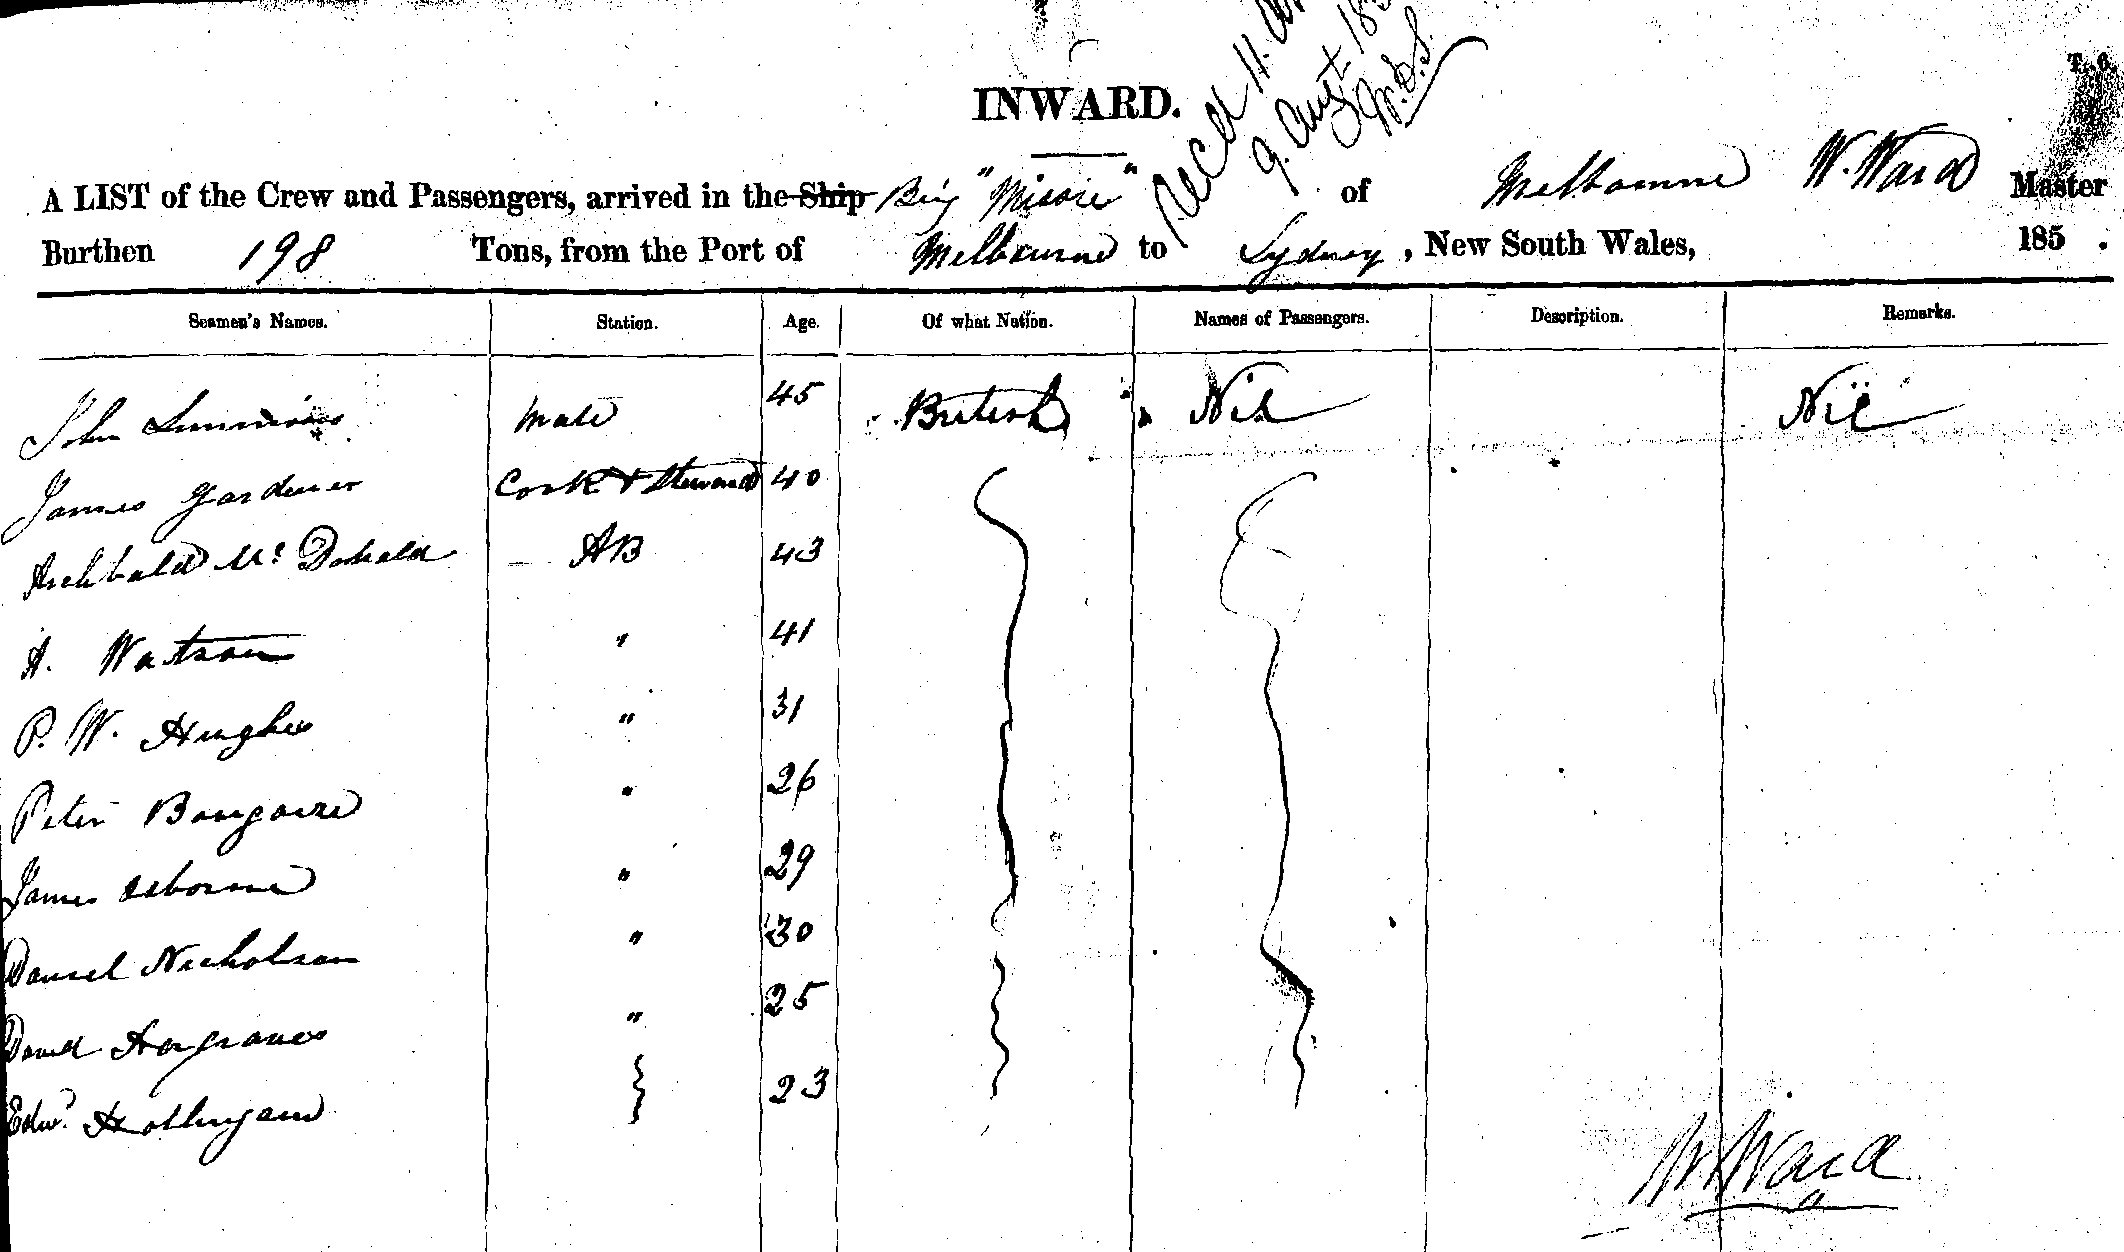 T. 6.
INWARD.
Recd H.
9. Augt 185
A LIST of the Crew and Passengers, arrived in the Ship Brig "Missie" of Melbourne W. Ward Master
Burthen 198 Tons, from the Port of Melbourne to Sydney, New South Wales, 185 .
Seamen's Names. Station. Age. Of what Nation. Names of Passengers. Description. Remarks.
John Mate 45 British Nil Nil
James Gardener Cook & Steward 40
Archbald Mc Donald AB 43
A. Watson " 41
P. W. Hughes " 31
Peter " 26
James Osborne " 29
Daniel Nicholson " 30
David Hargraves " 25
Edwd. 23
W Ward